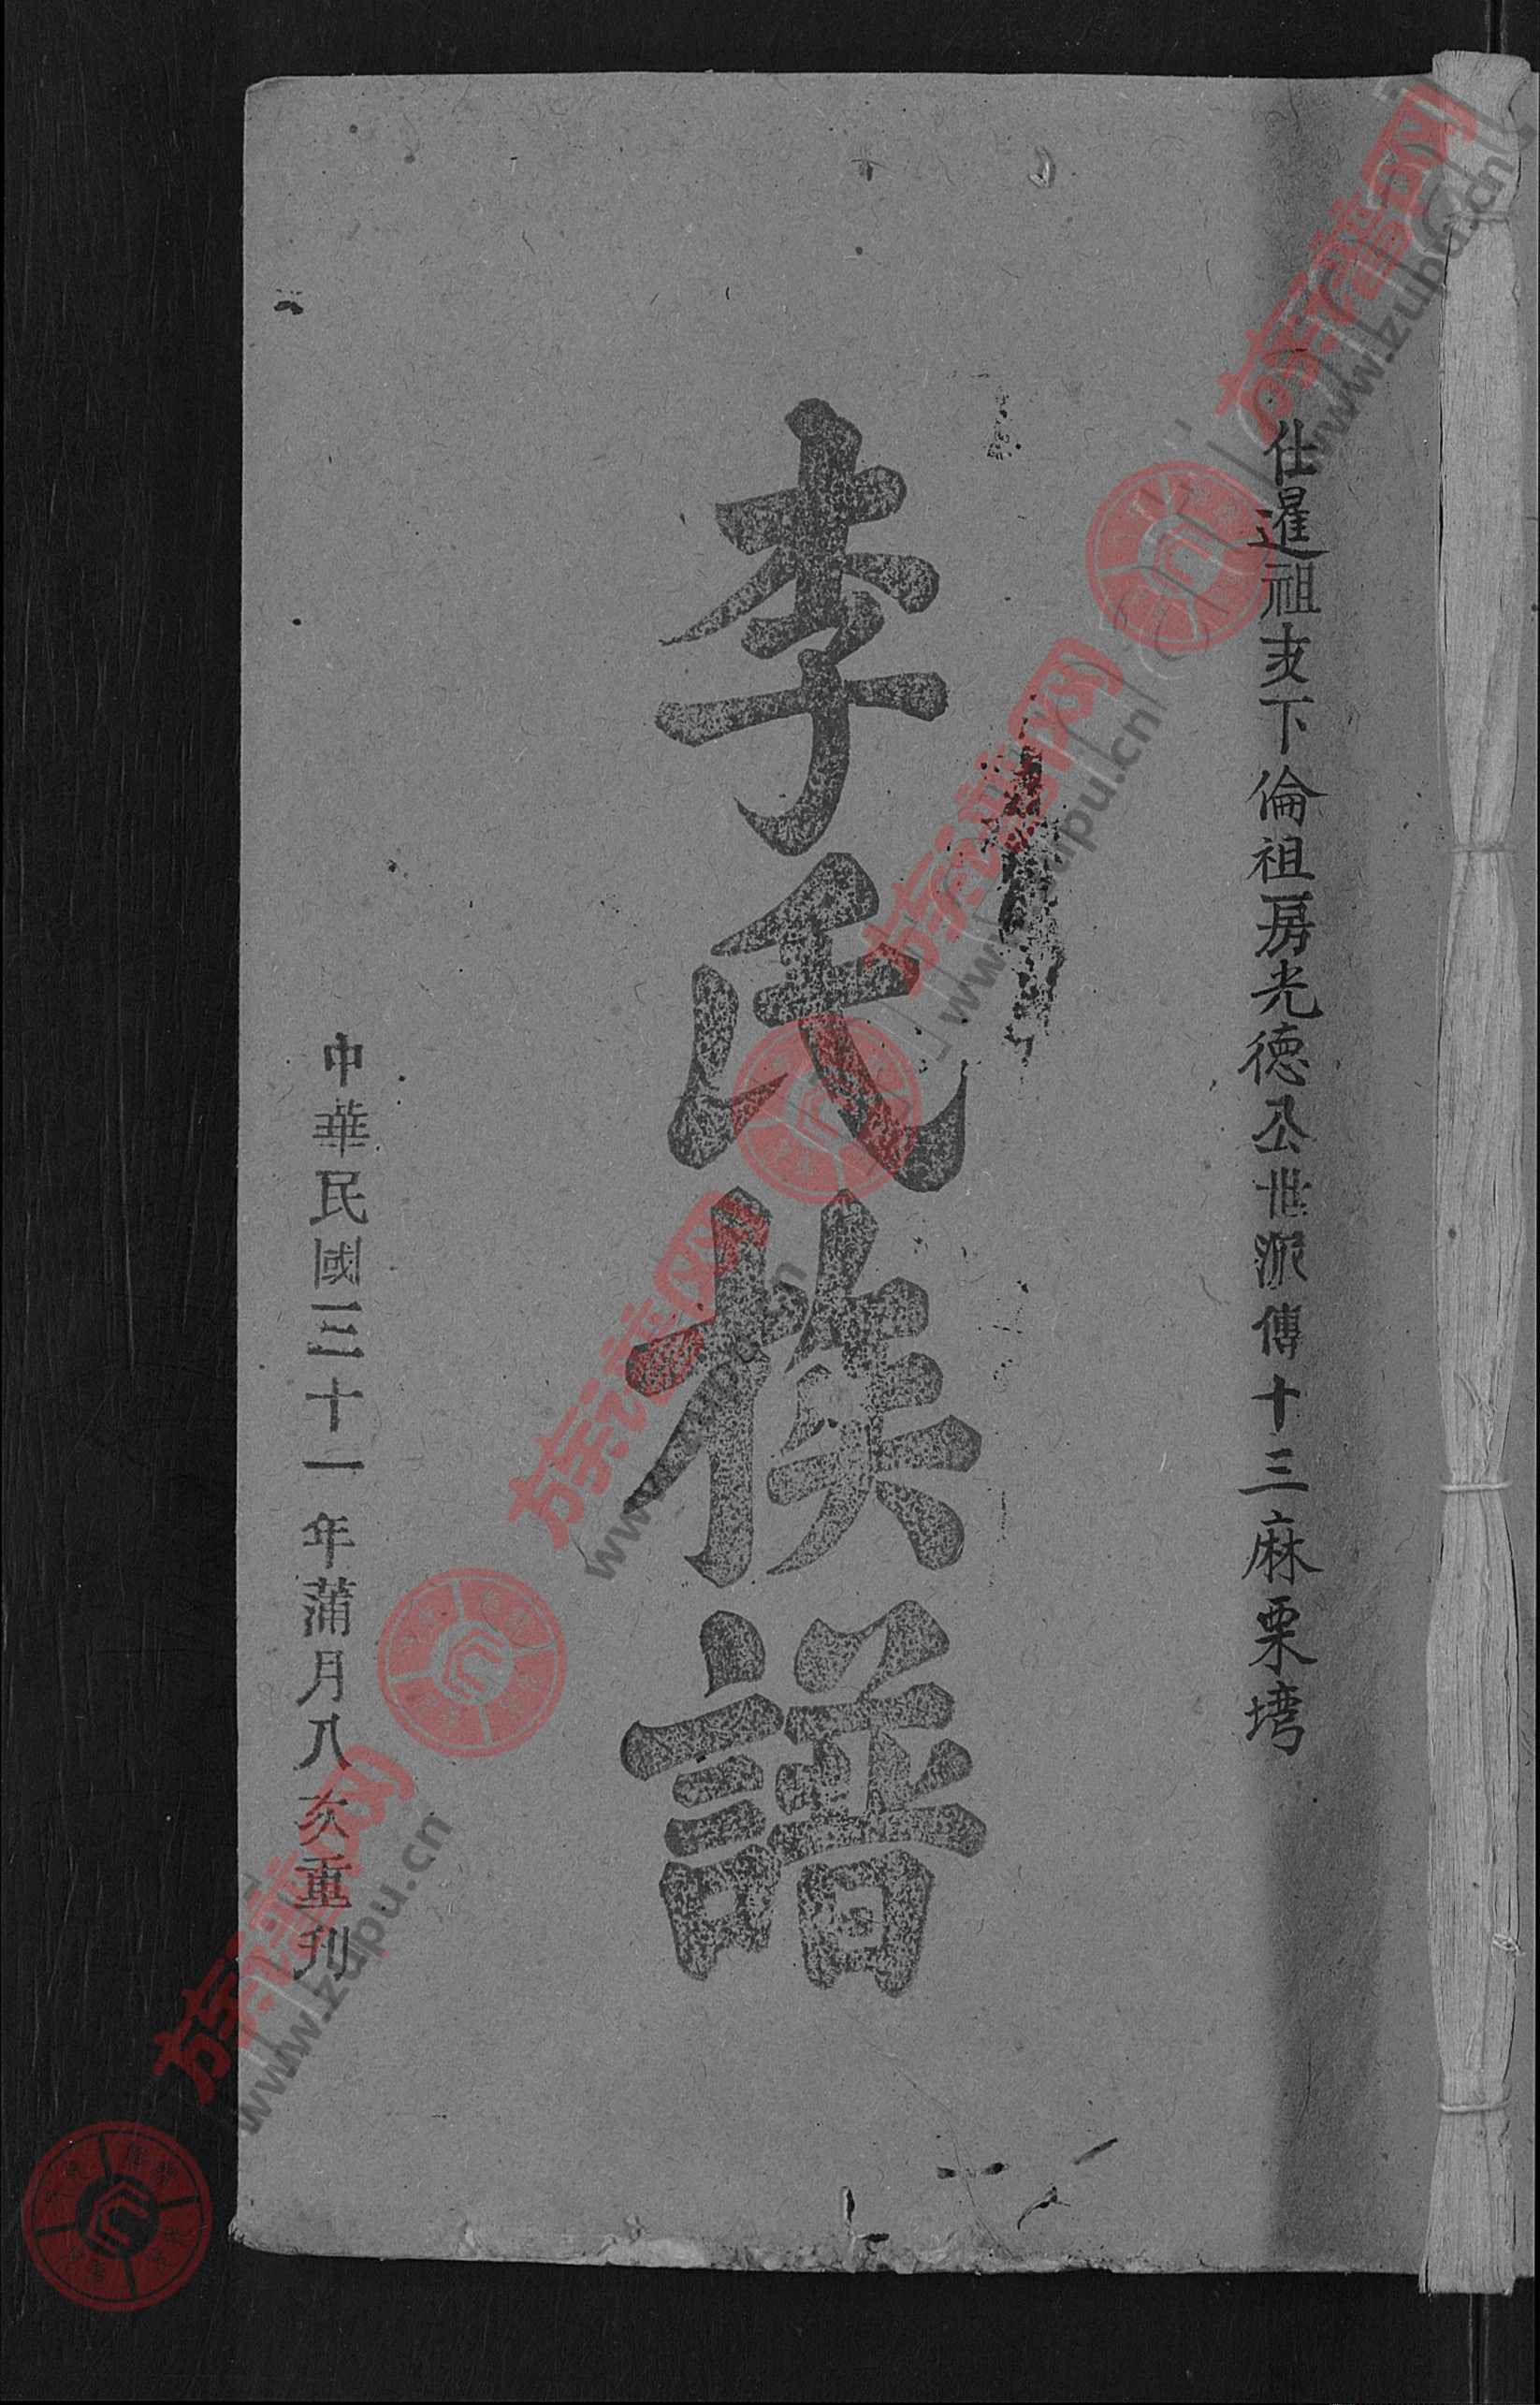 仕暹祖支下倫祖房光德公世派傳十三麻栗塆
李氏族譜
中華民國三十一年蒲月八亥重刊
族譜网
www.zupu.cn
族譜网
www.zupu.cn
族譜网
www.zupu.cn
族譜网
www.zupu.cn